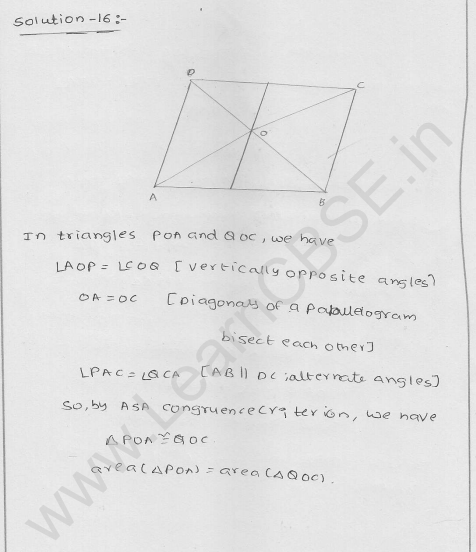 Solution-16:-
D
C
O
A
B
In triangles POA and QOC, we have
∠AOP = ∠COQ [vertically opposite angles]
OA = OC [Diagonals of a parallelogram
bisect each other]
∠PAC = ∠QCA [AB || DC; alternate angles]
So, by ASA congruence criterion, we have
△POA ≅ QOC.
area(△POA) = area(△QOC).
www.LearnCBSE.in